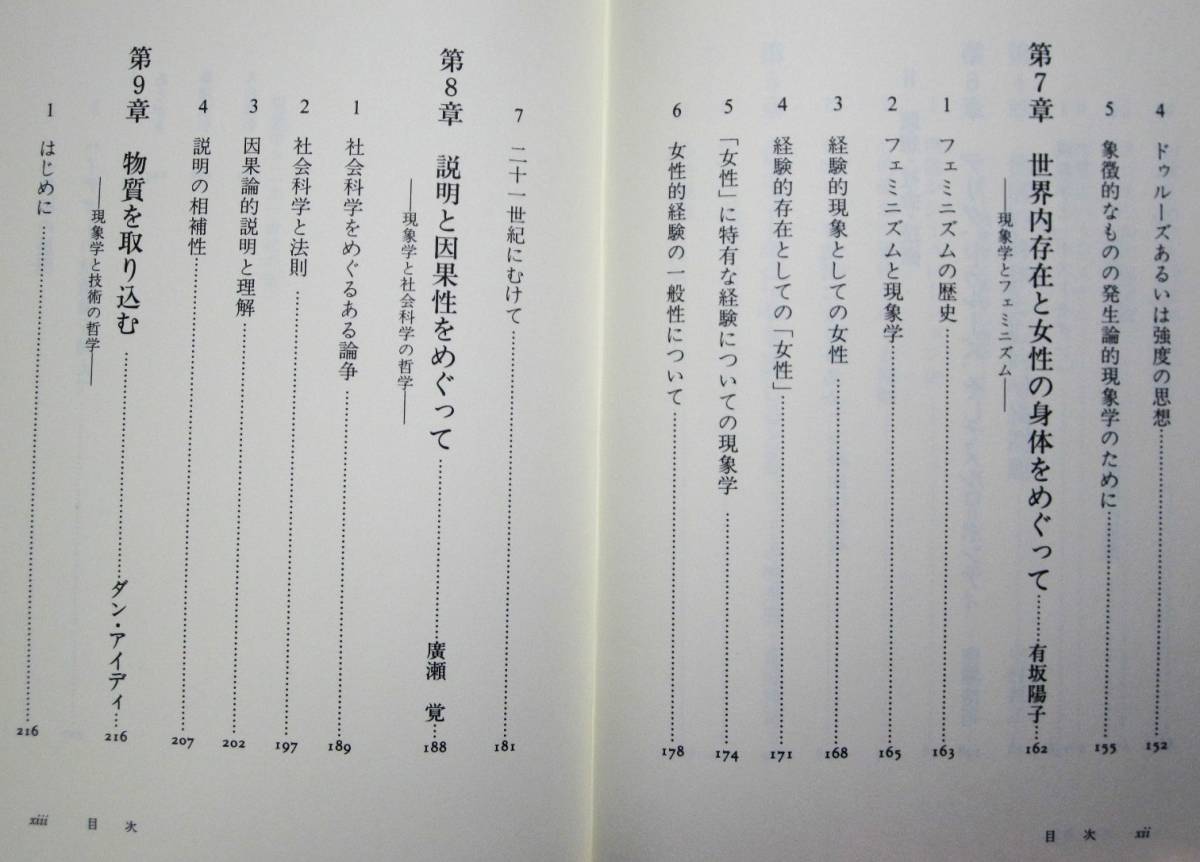 4 ドゥルーズあるいは強度の思想……152
5 象徴的なものの発生論的現象学のために……155
第7章 世界内存在と女性の身体をめぐって……有坂陽子……162
――現象学とフェミニズム――
1 フェミニズムの歴史……163
2 フェミニズムと現象学……165
3 経験的現象としての女性……168
4 経験的存在としての「女性」……171
5 「女性」に特有な経験についての現象学……174
6 女性的経験の一般性について……178
目次 xii
7 二十一世紀にむけて……181
第8章 説明と因果性をめぐって……廣瀬 覚……188
――現象学と社会科学の哲学――
1 社会科学をめぐるある論争……189
2 社会科学と法則……197
3 因果論的説明と理解……202
4 説明の相補性……207
第9章 物質を取り込む……ダン・アイディ……216
――現象学と技術の哲学――
1 はじめに……216
xiii 目次